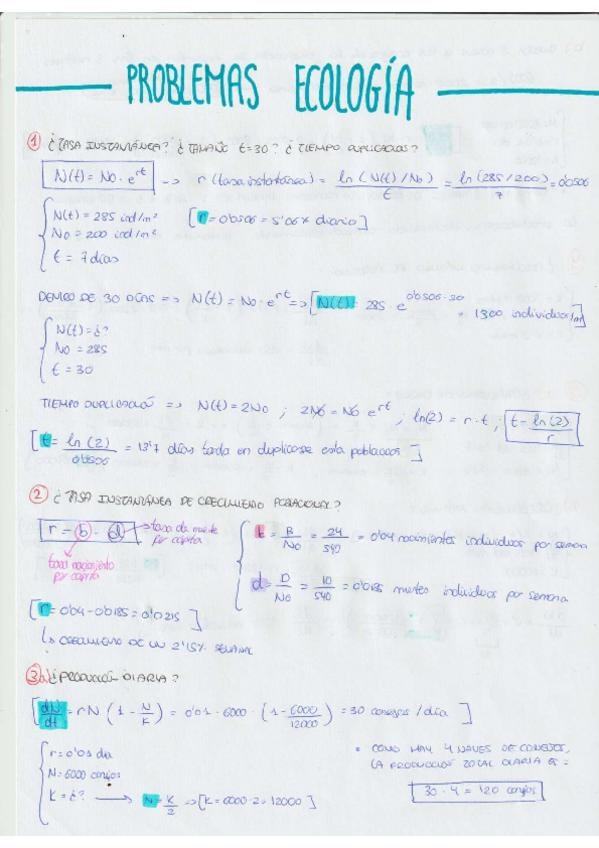 PROBLEMAS ECOLOGÍA
① ¿TASA INSTANTÁNEA? ¿TAMAÑO t=30? ¿TIEMPO DUPLICADOS?
N(t) = N0 · e^rt → r (tasa instantánea) = ln (N(t) / N0) / t = ln (285 / 200) / 7 = 0'0506
N(t) = 285 ind/m² [r = 0'0506 = 5'06% diario]
N0 = 200 ind/m²
t = 7 días
DENTRO DE 30 DÍAS => N(t) = N0 · e^rt => [N(t) = 285 · e^0'0506·30 = 1300 individuos/m²]
N(t) = ¿?
N0 = 285
t = 30
TIEMPO DUPLICACIÓN => N(t) = 2N0 ; 2N0 = N0 e^rt ; ln(2) = r · t ; t = ln(2) / r
[t = ln(2) / 0'0506 = 13'7 días tarda en duplicarse esta población]
② ¿TASA INSTANTÁNEA DE CRECIMIENTO POBLACIONAL?
r = b - d → tasa de muerte per cápita
tasa nacimiento per cápita
b = B / N0 = 24 / 540 = 0'04 nacimientos individuos por semana
d = D / N0 = 10 / 540 = 0'0185 muertes individuos por semana
[r = 0'04 - 0'0185 = 0'0215]
↳ CRECIMIENTO DE UN 2'15% SEMANAL
③ a) ¿PRODUCCIÓN DIARIA?
[dN/dt = rN (1 - N/K) = 0'01 · 6000 · (1 - 6000/12000) = 30 conejos / día]
r = 0'01 día
N = 6000 conejos
K = ¿? → N = K/2 => [K = 6000 · 2 = 12000]
* COMO HAY 4 NAVES DE CONEJOS,
LA PRODUCCIÓN TOTAL DIARIA ES =
30 · 4 = 120 conejos